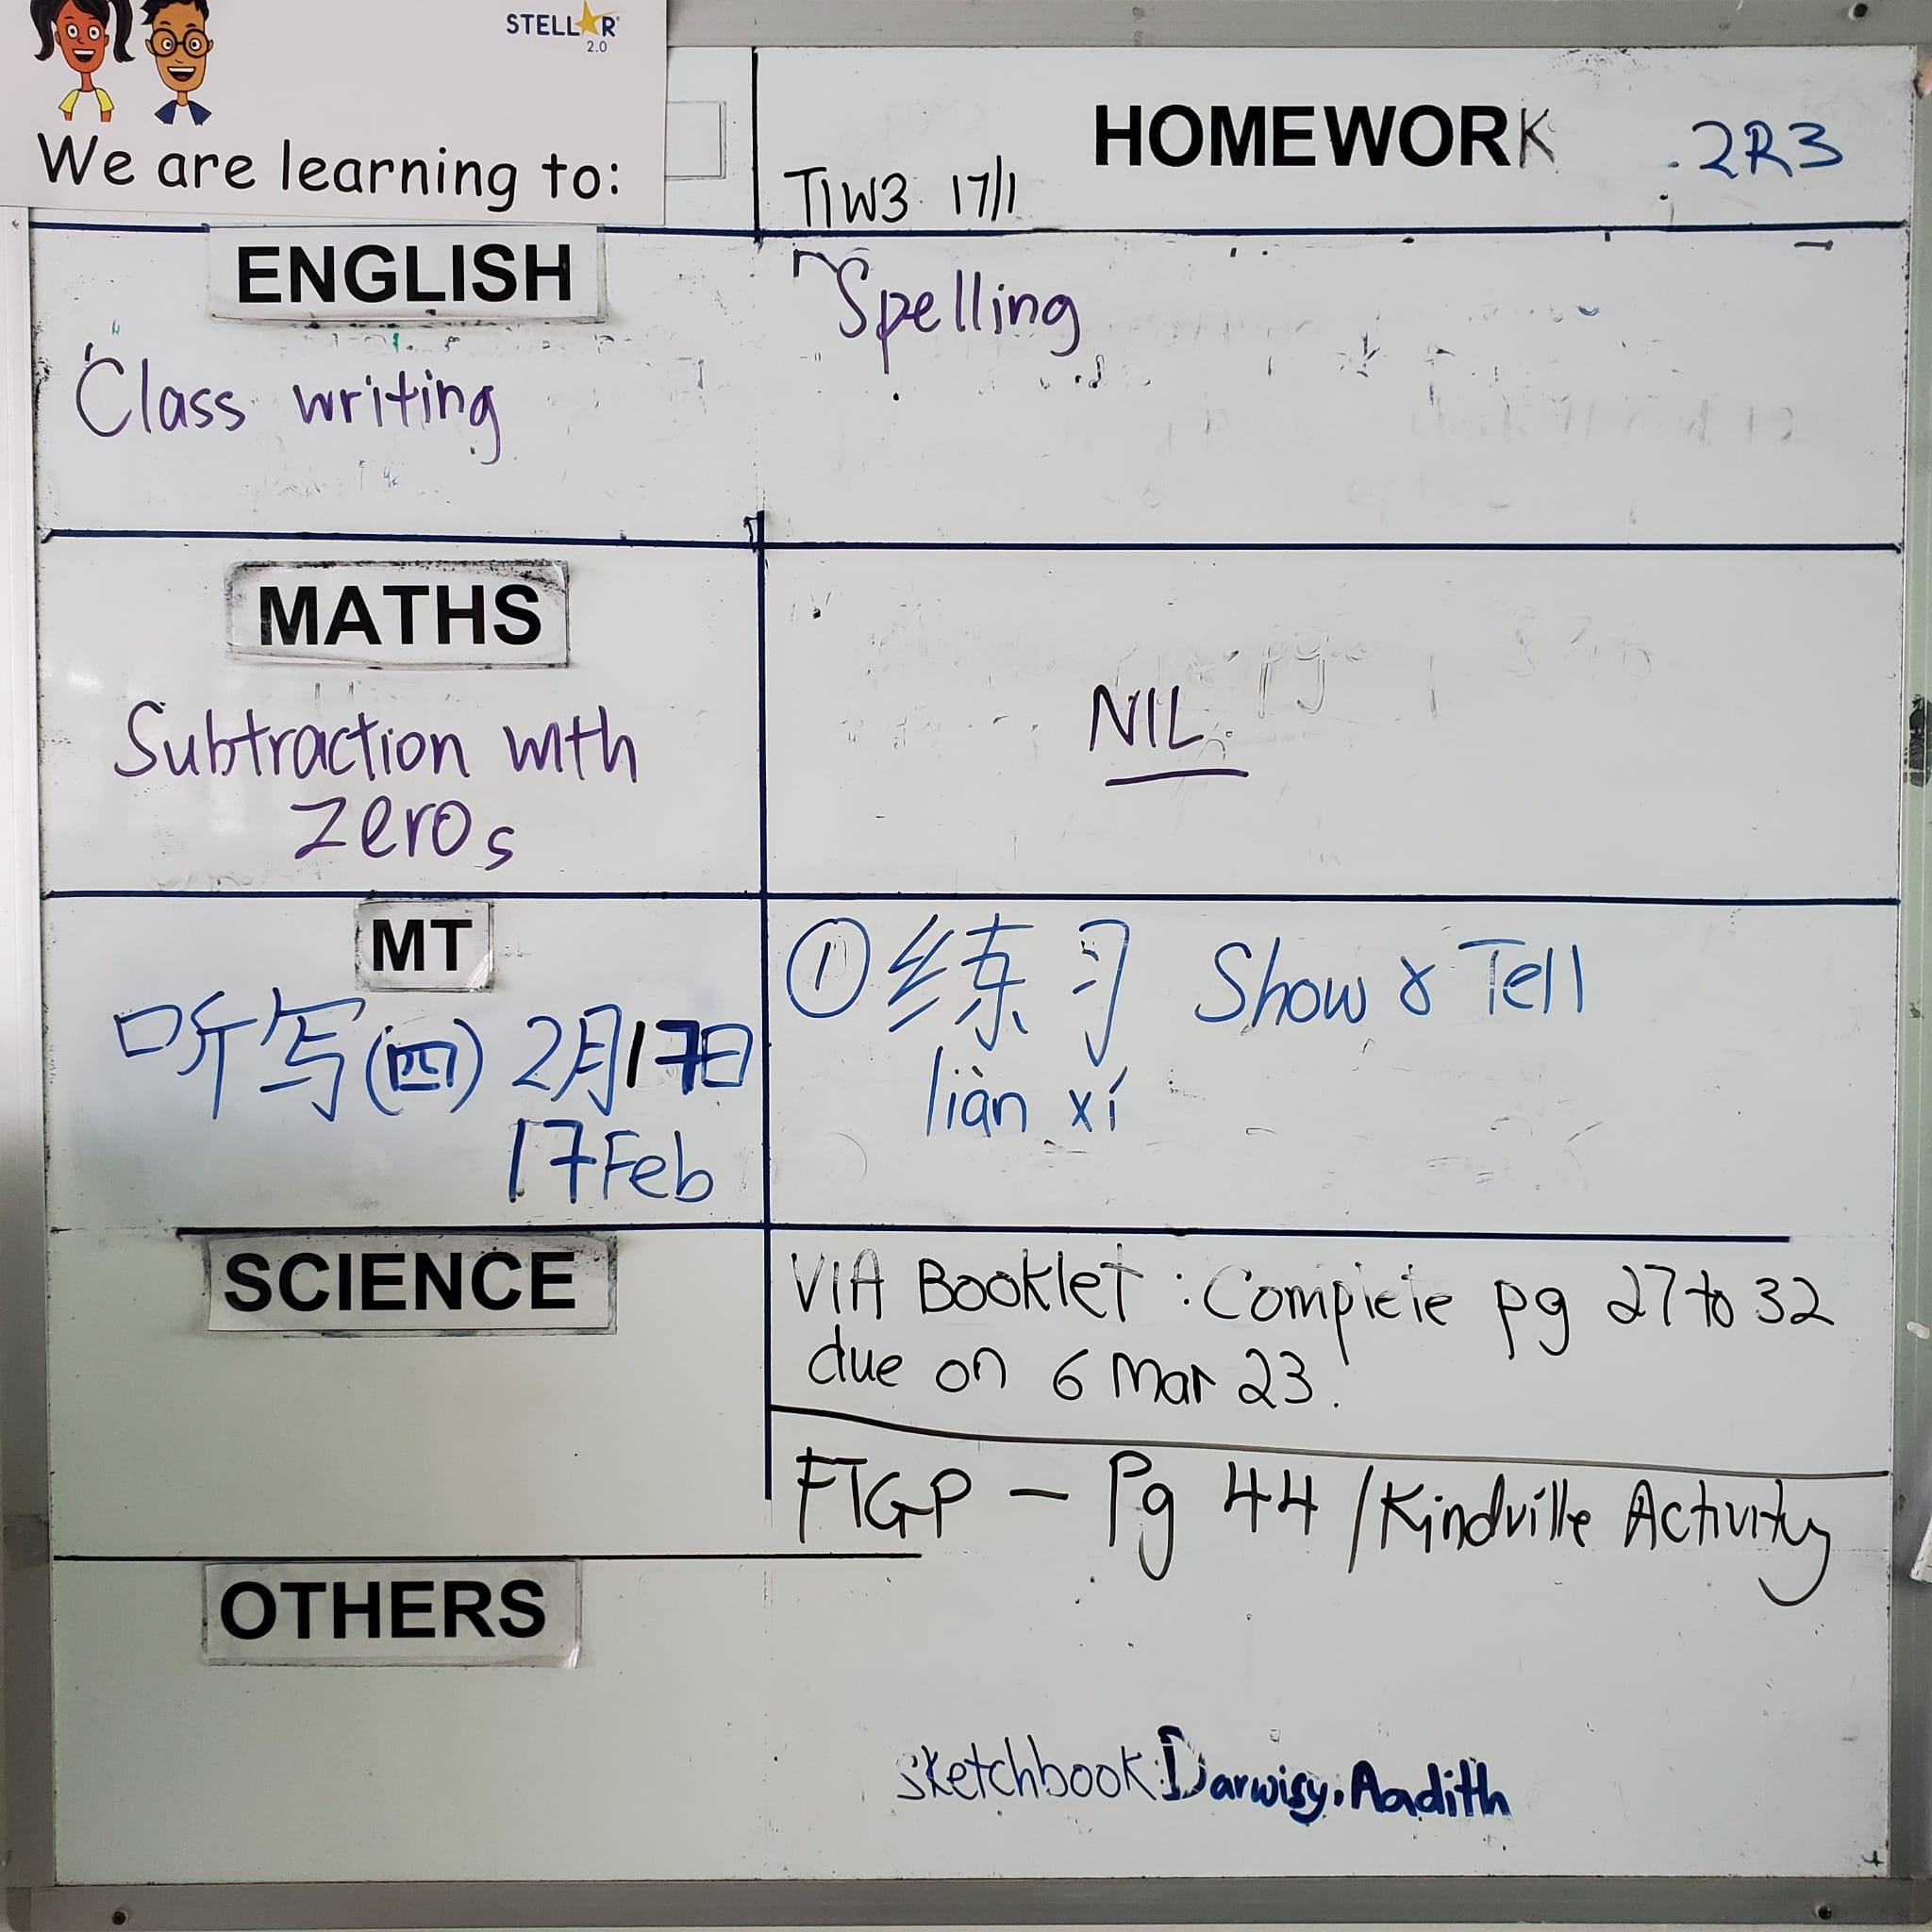 STELLAR
2.0
We are learning to:
HOMEWORK 2R3
T1W3 17/1
ENGLISH
Class writing
Spelling
MATHS
Subtraction with
zeros
NIL
MT
听写(四) 2月17日
17 Feb
① 练习 Show & Tell
liàn xí
SCIENCE
VIA Booklet : Complete pg 27 to 32
due on 6 Mar 23.
FTGP – Pg 44 / Kindville Activity
OTHERS
sketchbook: Darwisy, Aadith